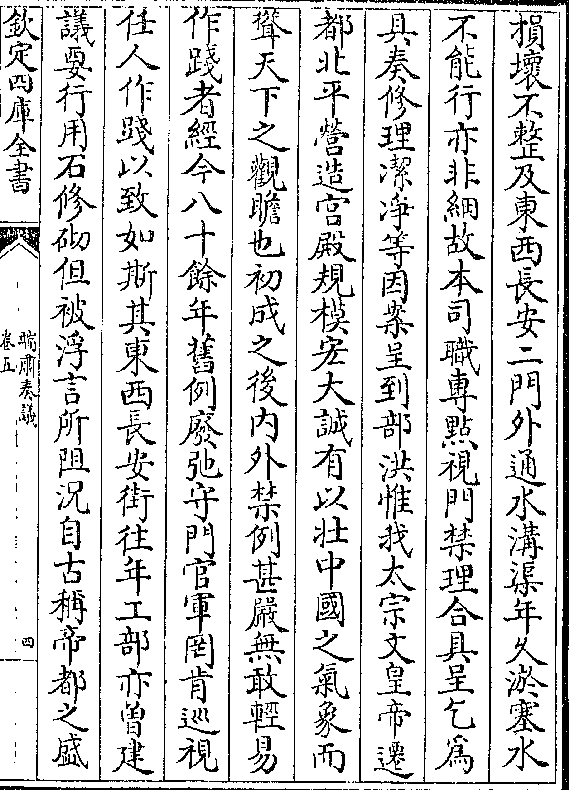 損壞不整及東西長安二門外通水溝渠年久淤塞水
不能行亦非細故本司職專點視門禁理合具呈乞為
具奏修理潔淨等因案呈到部洪惟我太宗文皇帝遷
都北平營造宫殿規模宏大誠有以壯中國之氣象而
聳天下之觀瞻也初成之後内外禁例甚嚴無敢輕易
作踐者經今八十餘年舊例廢弛守門官軍罔肯巡視
任人作踐以致如斯其東西長安街往年工部亦曾建
議要行用石修砌但被浮言所阻況自古稱帝都之盛
欽定四庫全書
端肅奏議
卷五
四